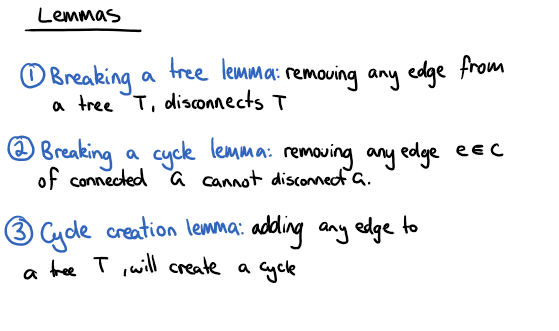 Lemmas
① Breaking a tree lemma: removing any edge from
a tree T, disconnects T
② Breaking a cycle lemma: removing any edge e ∈ C
of connected G cannot disconnect G.
③ Cycle creation lemma: adding any edge to
a tree T, will create a cycle